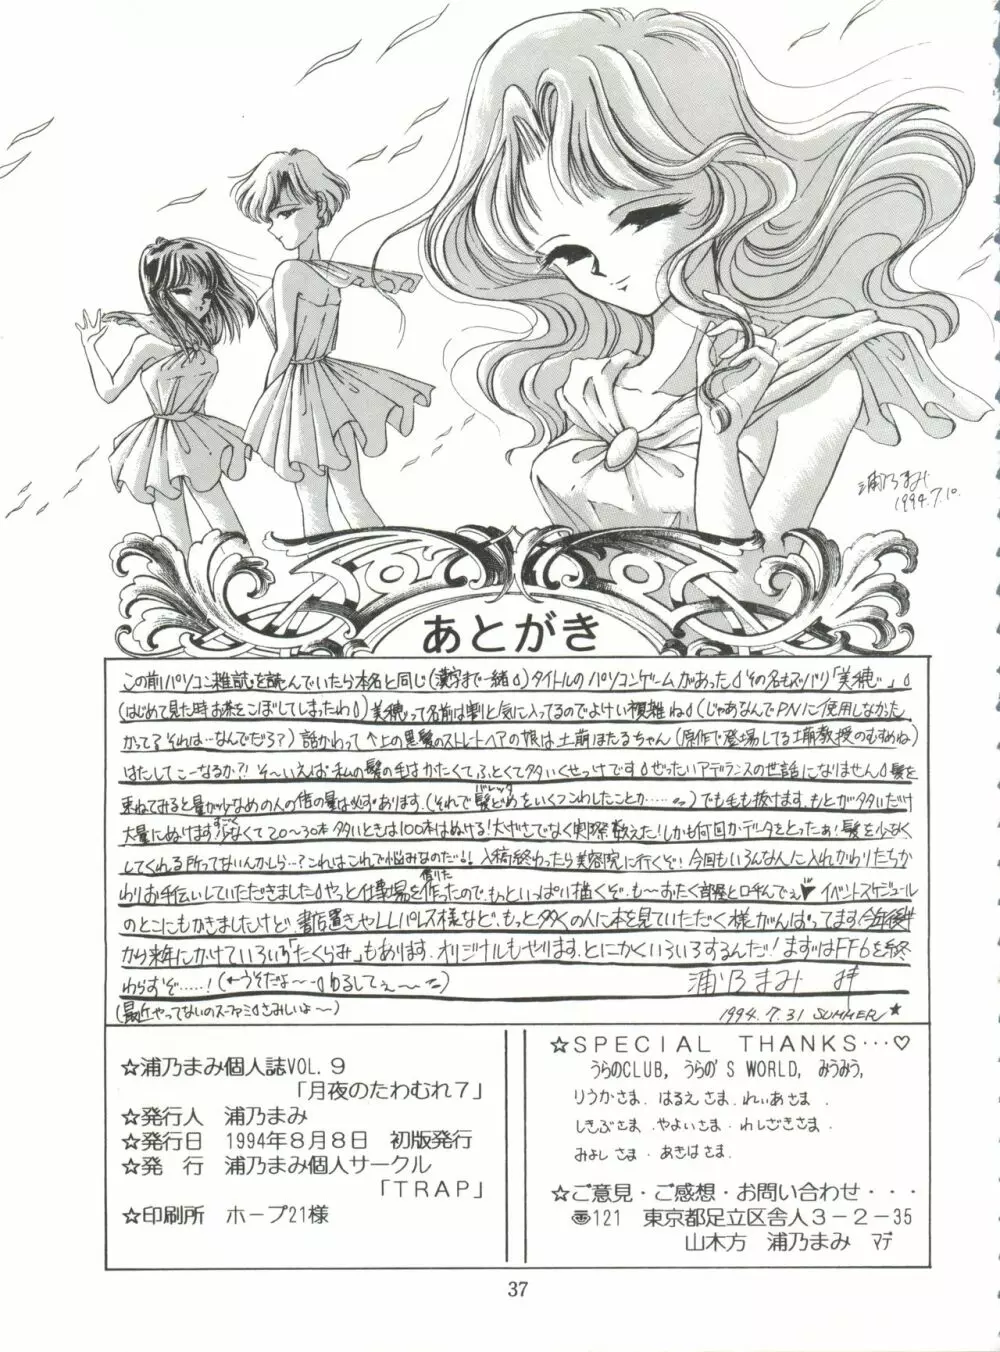 浦乃まみ
1994.7.10.
あとがき
この前パソコン雑誌を読んでいたら本名と同じ(漢字まで一緒)タイトルのパソコンゲームがあった その名もズバリ「美穂」
(はじめて見た時お茶をこぼしてしまったわ)美穂って名前は割と気に入ってるのでよけい複雑ね(じゃあなんでPNに使用しなかった
かって?それは…なんでだろ?)話かわって↑上の黒髪のストレートヘアの娘は土萠ほたるちゃん(原作で登場してる土萠教授のむすめね)
はたしてこーなるか?!そ〜いえば私の髪の毛はかたくてふとくて多いくせっけです ぜったいアデランスの世話になりません 髪を
束ねてみると量が少なめの人の倍の量は必ずあります.(それで髪どめをいくつこわしたことか……)でも毛も抜けます.もとが多いだけ
バレッタ
大量にぬけます すごく少なくて20〜30本多いときは100本はぬける!大げさでなく実際数えた!しかも何回かデータをとったぁ!髪を少なく
してくれる所ってないんかしら…?これはこれで悩みなのだ!!入稿終わったら美容院に行くぞ!今回もいろんな人に入れかわりたちか
わりお手伝いしていただきました やっと仕事場を作ったので.もっといっぱい描くぞ.も〜おたく部屋と呼んでぇ♥イベントスケジュール
借りた
のとこにもかきましたけど、書店置きやLLパレス様など、もっと多くの人に本を見ていただく様がんばってます 今年後半
から来年にかけていろいろ「たくらみ」もあります.オリジナルもやります.とにかくいろいろするんだ!まずはFF6を終
わらすぞ……!(←うそだよ〜 ゆるしてぇ〜) 浦乃まみ
(最近やってないのスーファミ さみしいよ〜) 1994.7.31 SUMMER★
☆浦乃まみ個人誌VOL.9
「月夜のたわむれ7」
☆発行人 浦乃まみ
☆発行日 1994年8月8日 初版発行
☆発 行 浦乃まみ個人サークル
「TRAP」
☆印刷所 ホープ21様
☆SPECIAL THANKS…♡
うらのCLUB, うらの'S WORLD, みうみう,
りうかさま.はるえさま.れいあさま.
しきぶさま.やよいさま.わしざきさま.
みよしさま.あきはさま.
☆ご意見・ご感想・お問い合わせ・・・
〠121 東京都足立区舎人3-2-35
山木方 浦乃まみ マデ
37